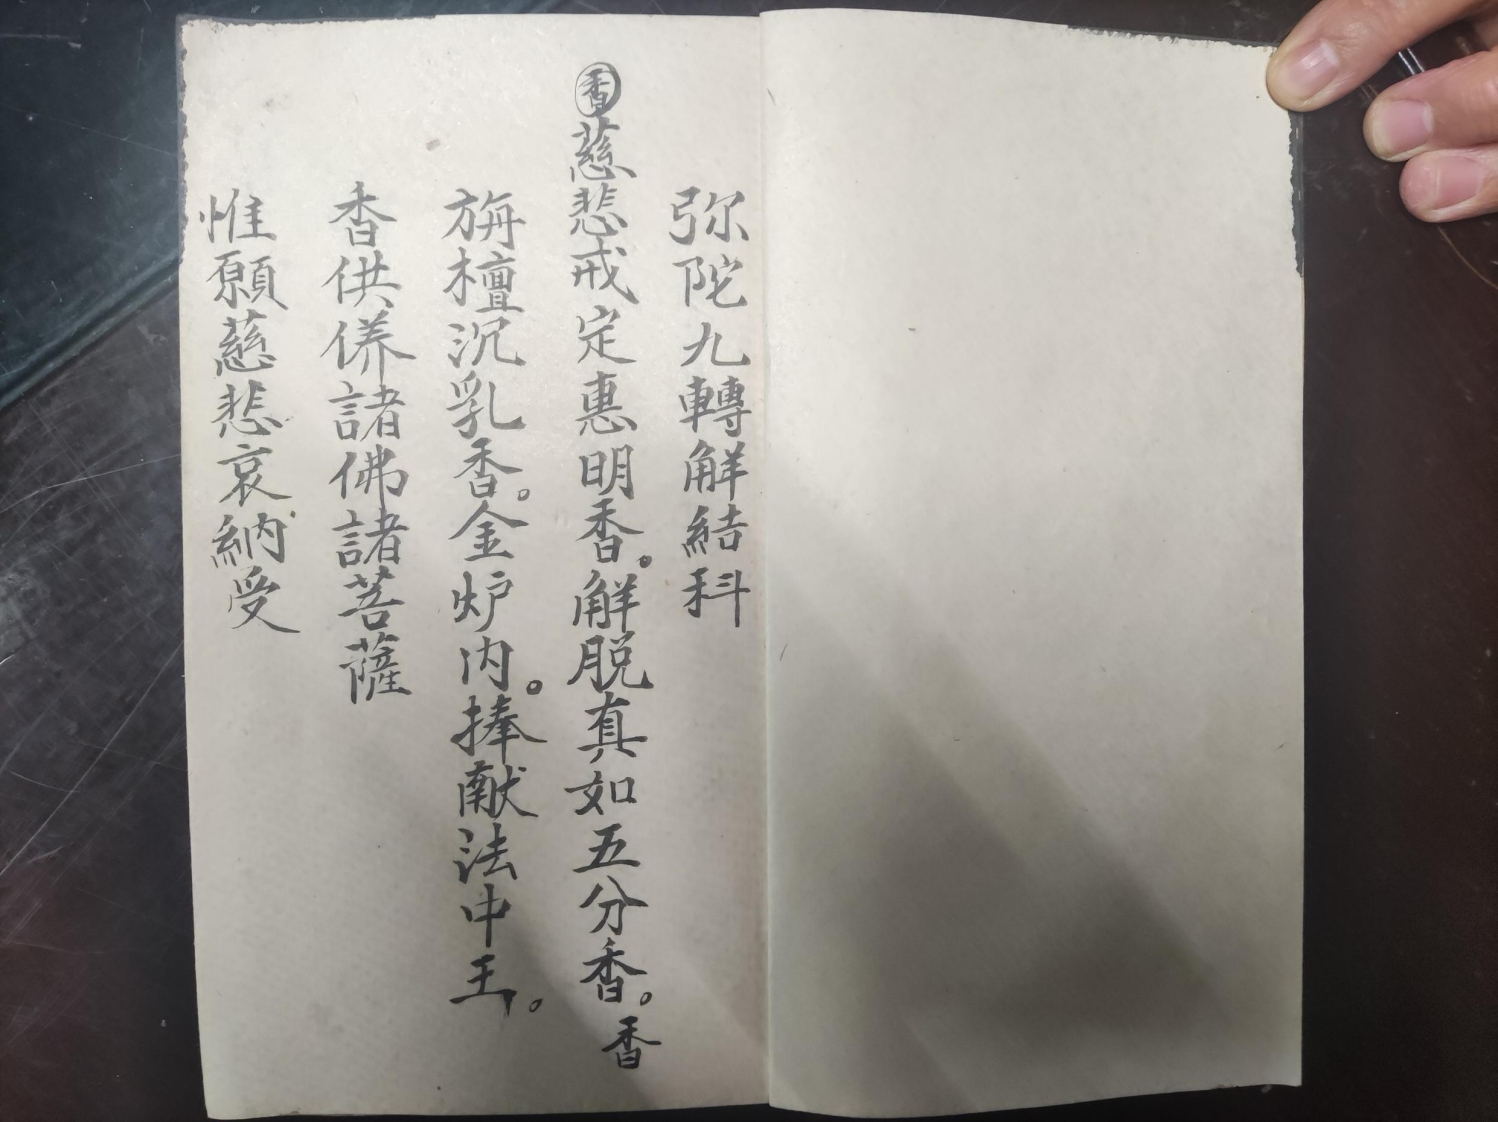 弥陀九轉解結科
香慈悲戒定惠明香。解脱真如五分香。香
旃檀沉乳香。金炉内。捧献法中王。
香供养諸佛諸菩薩
惟願慈悲哀納受